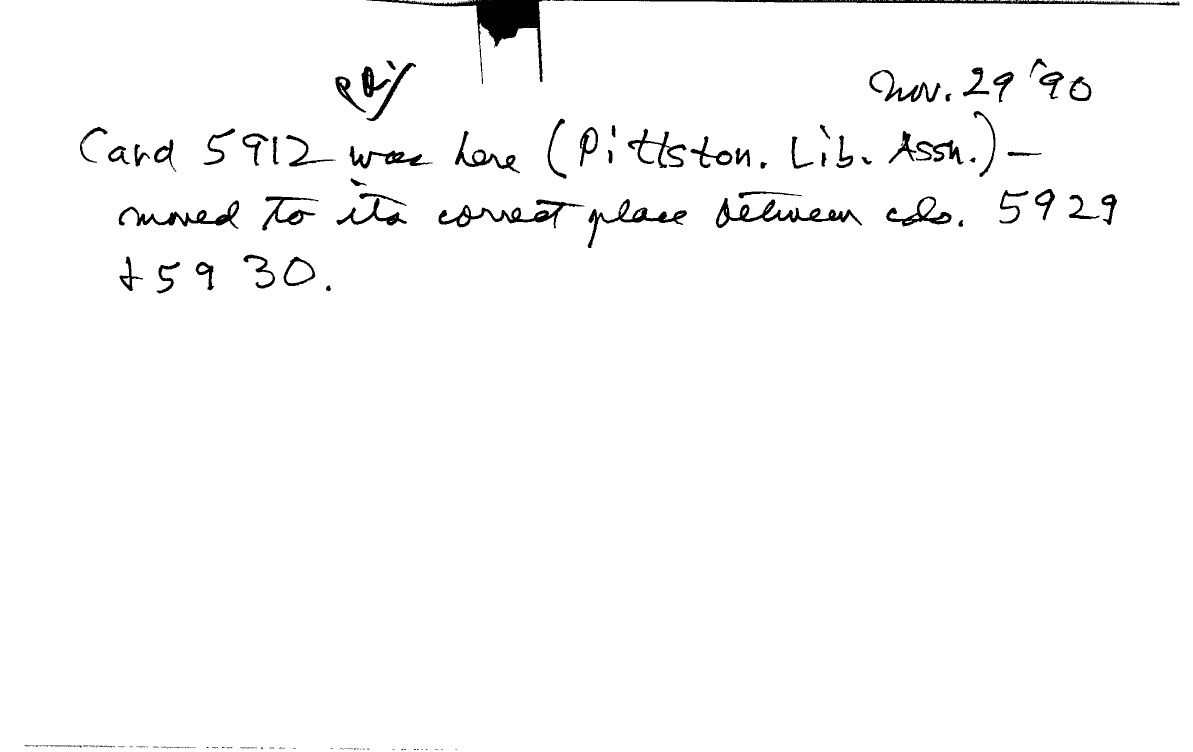 Nov. 29 '90
Card 5912 was here (Pittston. Lib. Assn.) –
moved to its correct place between cds. 5929
+ 5930.